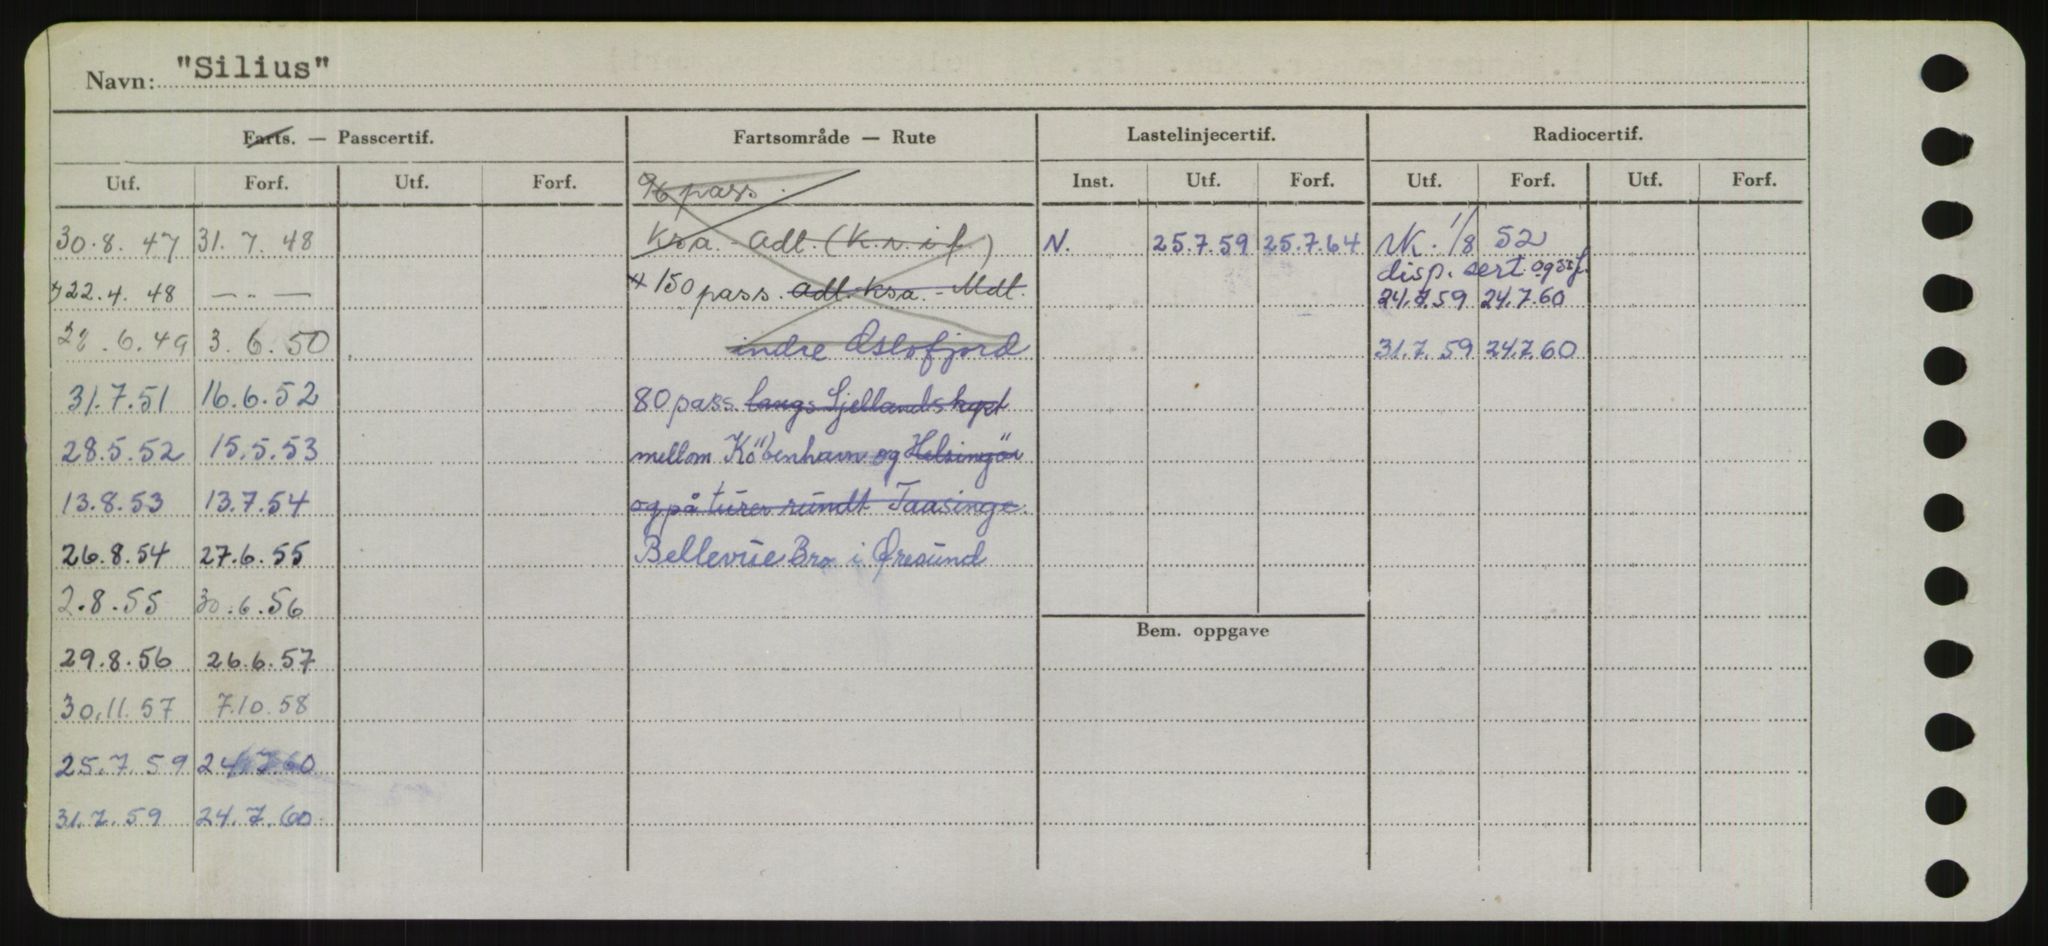 Navn: "Silius"
Farts. — Passcertif. Fartsområde — Rute Lastelinjecertif. Radiocertif.
Utf. Forf. Utf. Forf. 96 pass. Inst. Utf. Forf. Utf. Forf. Utf. Forf.
30.8.47 31.7.48 Ksa. - Adl. (K.n.i f.) N. 25.7.59 25.7.64 UK. 1/8 52
disp. sert. og sif.
22.4.48 — " — 150 pass. Adl. Ksa. - Mdl. 24.7.59 24.7.60
.6.49 3.6.50 indre Oslofjord 31.7.59 24.7.60
31.7.51 16.6.52 80 pass. langs Sjellands kyst
28.5.52 15.5.53 mellom Köbenhavn og Helsingör
13.8.53 13.7.54 og på turer rundt Taasinge.
26.8.54 27.6.55 Bellevue Bro i Øresund
2.8.55 30.6.56
Bem. oppgave
29.8.56 26.6.57
30.11.57 7.10.58
25.7.59 24.7.60
31.7.59 24.7.60